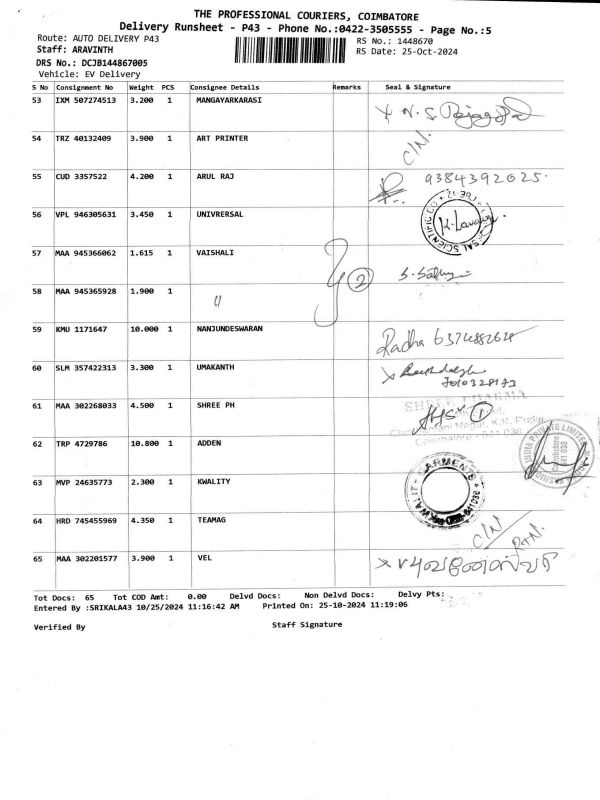 THE PROFESSIONAL COURIERS, COIMBATORE
Delivery Runsheet - P43 - Phone No.:0422-3505555 - Page No.:5
Route: AUTO DELIVERY P43
RS No.: 1448670
Staff: ARAVINTH
RS Date: 25-Oct-2024
DRS No.: DCJB144867005
Vehicle: EV Delivery
S No Consignment No Weight PCS Consignee Details Remarks Seal & Signature
53 IXM 507274513 3.200 1 MANGAYARKARASI
54 TRZ 40132409 3.900 1 ART PRINTER C/N.
55 CUD 3357522 4.200 1 ARUL RAJ 9384392025.
56 VPL 946305631 3.450 1 UNIVRERSAL
57 MAA 945366062 1.615 1 VAISHALI 2
58 MAA 945365928 1.900 1 "
59 KMU 1171647 10.000 1 NANJUNDESWARAN Radha
60 SLM 357422313 3.300 1 UMAKANTH
61 MAA 302268033 4.500 1 SHREE PH SHREE PHARMA 1
62 TRP 4729786 10.800 1 ADDEN INDIA PRIVATE LIMITED Coimbatore
63 MVP 24635773 2.300 1 KWALITY GARMENTS
64 HRD 745455969 4.350 1 TEAMAG C/N RTN.
65 MAA 302201577 3.900 1 VEL
Tot Docs: 65 Tot COD Amt: 0.00 Delvd Docs: Non Delvd Docs: Delvy Pts:
Entered By :SRIKALA43 10/25/2024 11:16:42 AM Printed On: 25-10-2024 11:19:06
Verified By Staff Signature